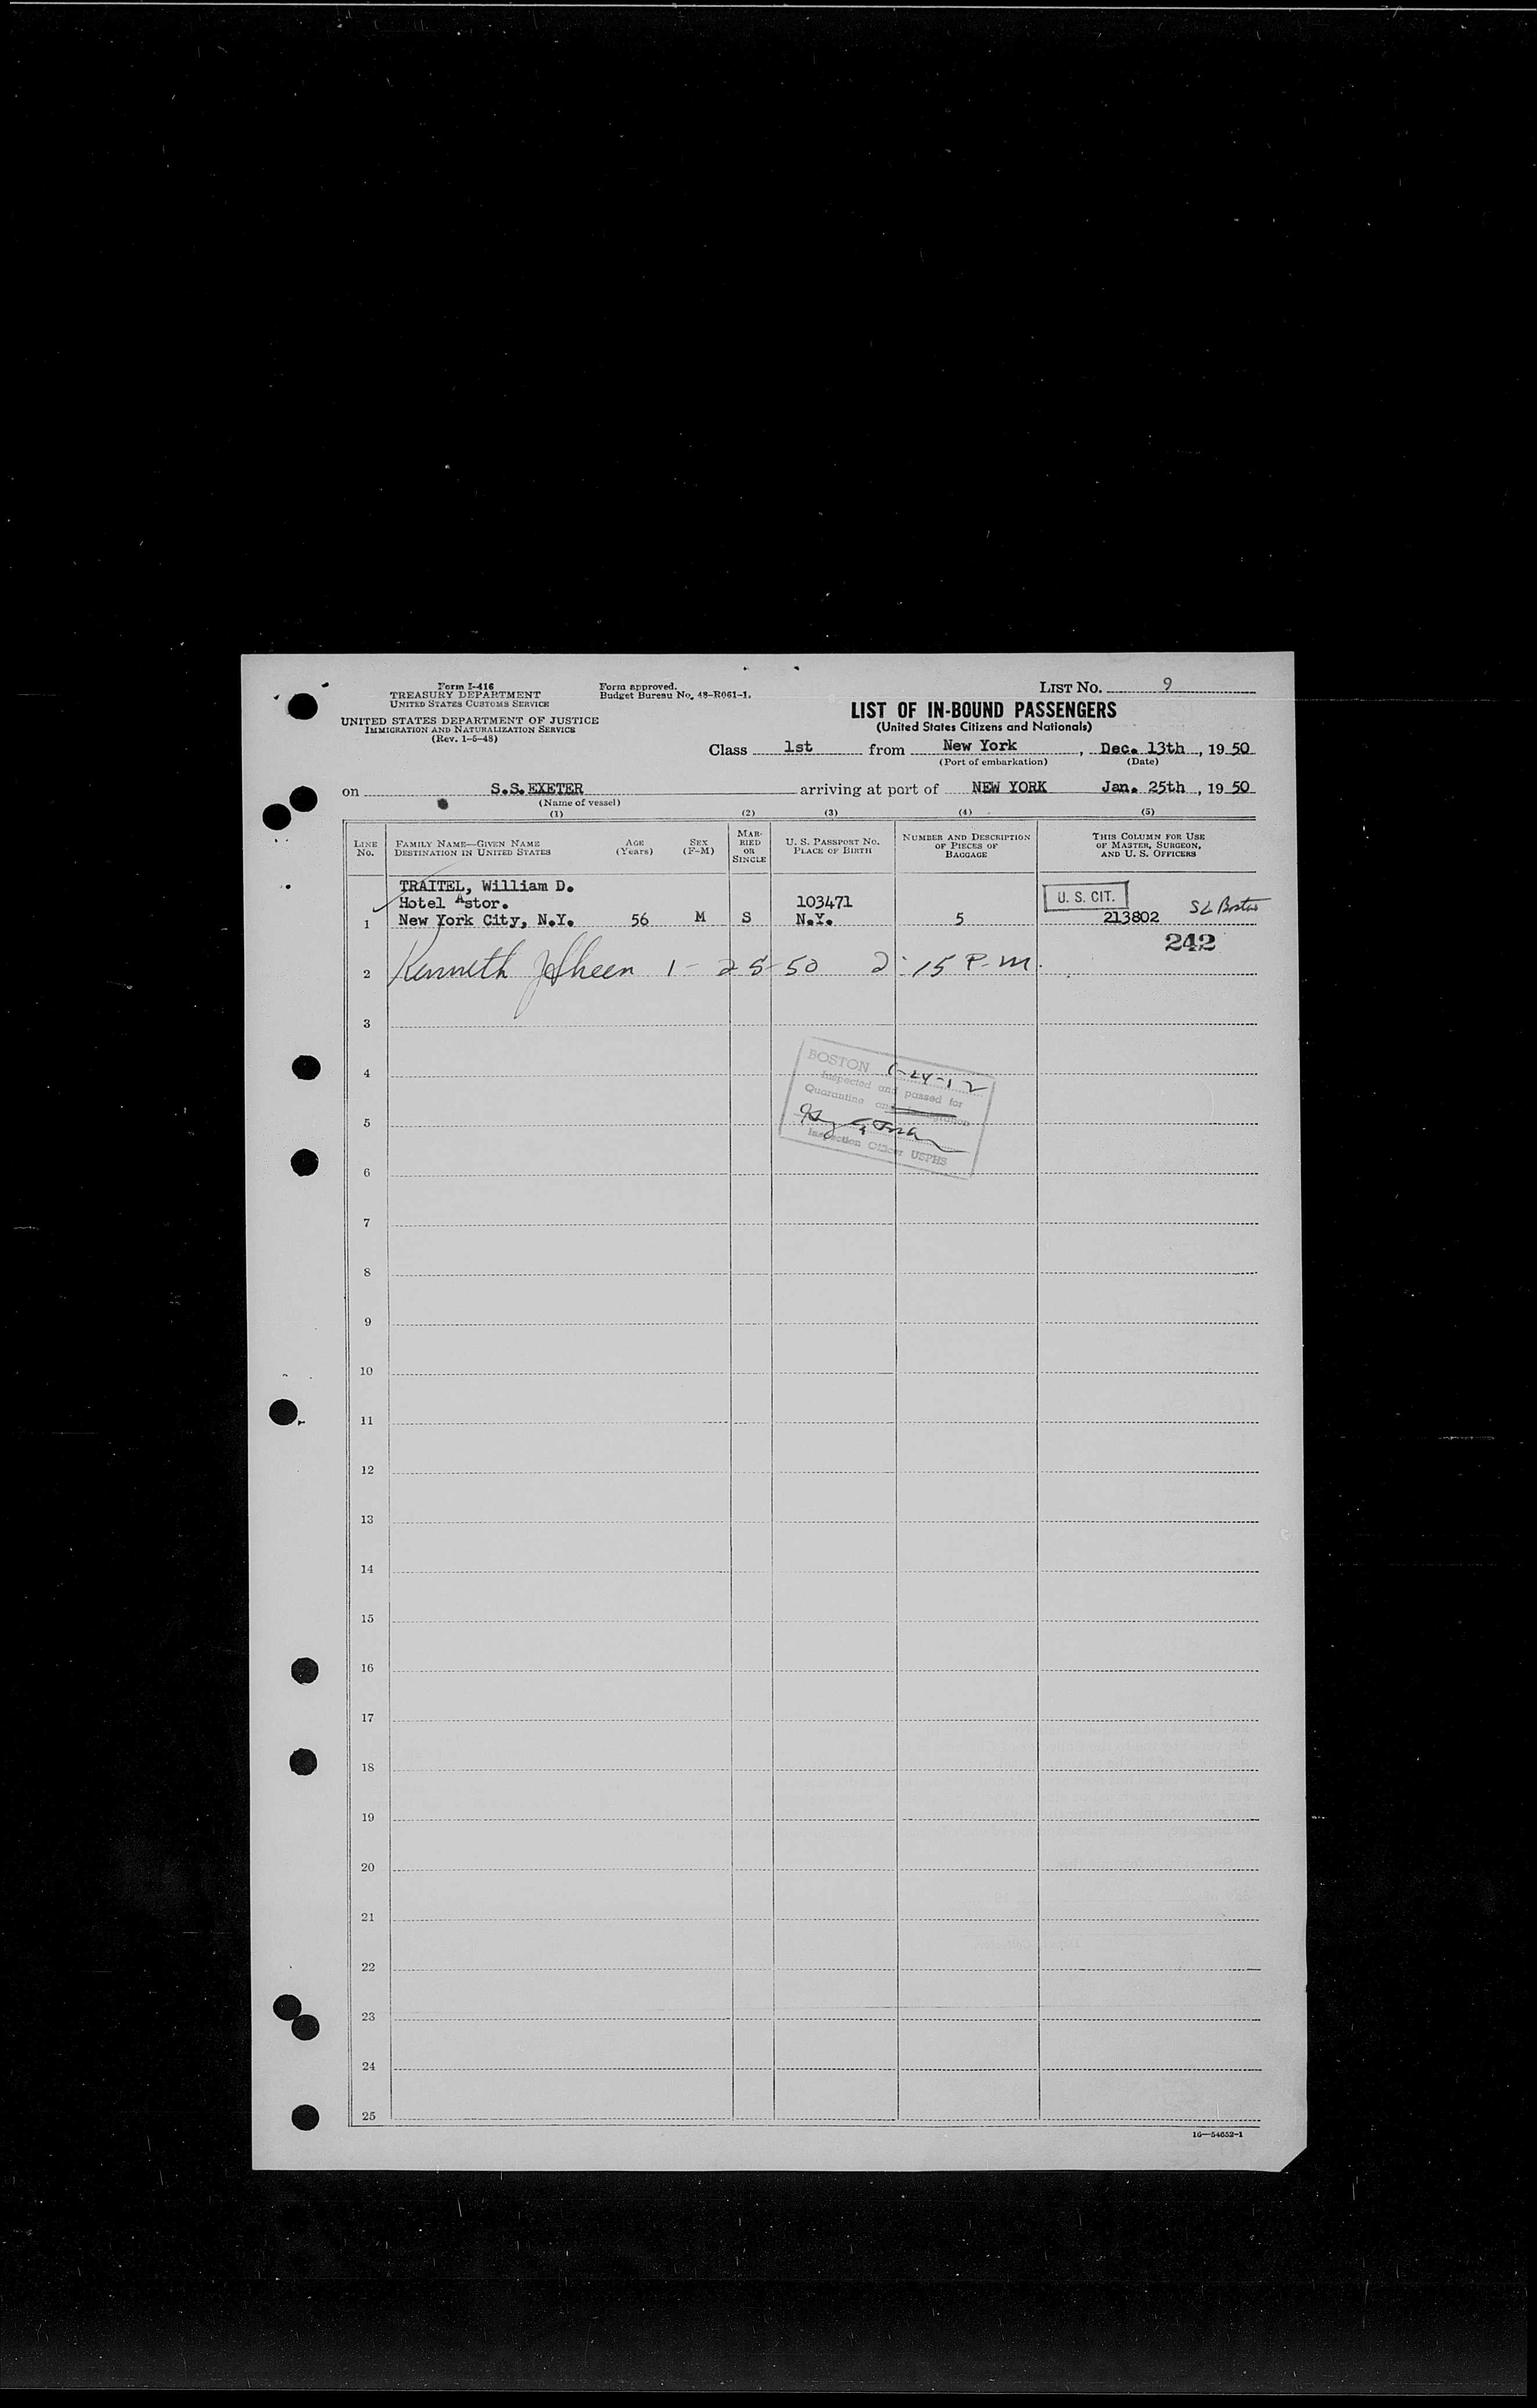 Form I-416
TREASURY DEPARTMENT
UNITED STATES CUSTOMS SERVICE
UNITED STATES DEPARTMENT OF JUSTICE
IMMIGRATION AND NATURALIZATION SERVICE
(Rev. 1-5-48)
Form approved.
Budget Bureau No. 43-R061-1.
LIST NO. 9
LIST OF IN-BOUND PASSENGERS
(United States Citizens and Nationals)
Class 1st from New York, Dec. 13th, 1950
(Port of embarkation) (Date)
on S.S. EXETER arriving at port of NEW YORK Jan. 25th, 1950
(Name of vessel)
(1) (2) (3) (4) (5)
LINE NO.
FAMILY NAME—GIVEN NAME
DESTINATION IN UNITED STATES
AGE
(Years)
SEX
(F-M)
MAR-
RIED
OR
SINGLE
U. S. PASSPORT NO.
PLACE OF BIRTH
NUMBER AND DESCRIPTION
OF PIECES OF
BAGGAGE
THIS COLUMN FOR USE
OF MASTER, SURGEON,
AND U. S. OFFICERS
TRAITEL, William D.
Hotel Astor. 103471 U. S. CIT.
1 New York City, N.Y. 56 M S N.Y. 5 213802 Boston
242
2 Kenneth Sheen 1-25-50 2:15 P.M.
3
4
BOSTON
Inspected and passed for
Quarantine and Immigration
Inspection Officer USPHS
5
6
7
8
9
10
11
12
13
14
15
16
17
18
19
20
21
22
23
24
25
16—54652-1